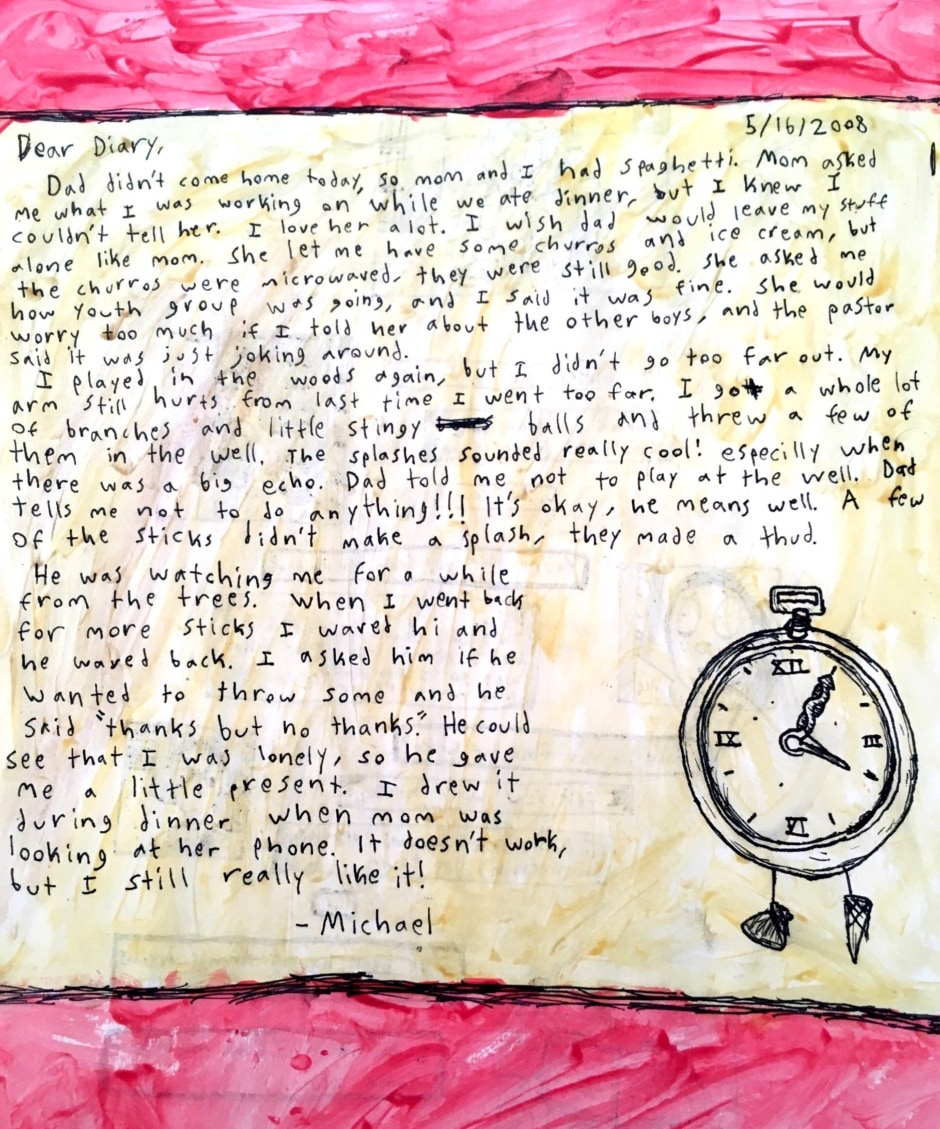 5/16/2008
Dear Diary,
Dad didn't come home today, so mom and I had spaghetti. Mom asked
me what I was working on while we ate dinner, but I knew I
couldn't tell her. I love her a lot. I wish dad would leave my stuff
alone like mom. She let me have some churros and ice cream, but
the churros were microwaved, they were still good. She asked me
how youth group was going, and I said it was fine. She would
worry too much if I told her about the other boys, and the pastor
said it was just joking around.
I played in the woods again, but I didn't go too far out. My
arm still hurts from last time I went too far. I got a whole lot
of branches and little stingy balls and threw a few of
them in the well. The splashes sounded really cool! especilly when
there was a big echo. Dad told me not to play at the well. Dad
tells me not to do anything!!! It's okay, he means well. A few
of the sticks didn't make a splash, they made a thud.
He was watching me for a while
from the trees. When I went back
for more sticks I waved hi and
he waved back. I asked him if he
wanted to throw some and he
said "thanks but no thanks." He could
see that I was lonely, so he gave
me a little present. I drew it
during dinner when mom was
looking at her phone. It doesn't work,
but I still really like it!
- Michael
XII
IX
III
VI